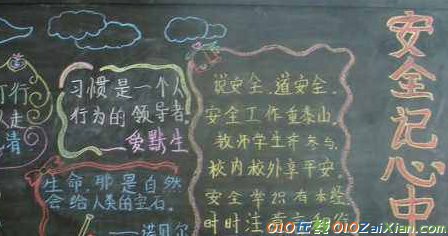 安全记心中
灯行
人走
清
习惯是一个人
行为的领导者。
爱默生
生命，那是自然
会给人类的宝石。
——诺贝尔
说安全，道安全。
安全工作重泰山。
教师学生齐参与，
校内校外享平安。
安全常识有本经
时时注意
010在线 010ZaiXian.com